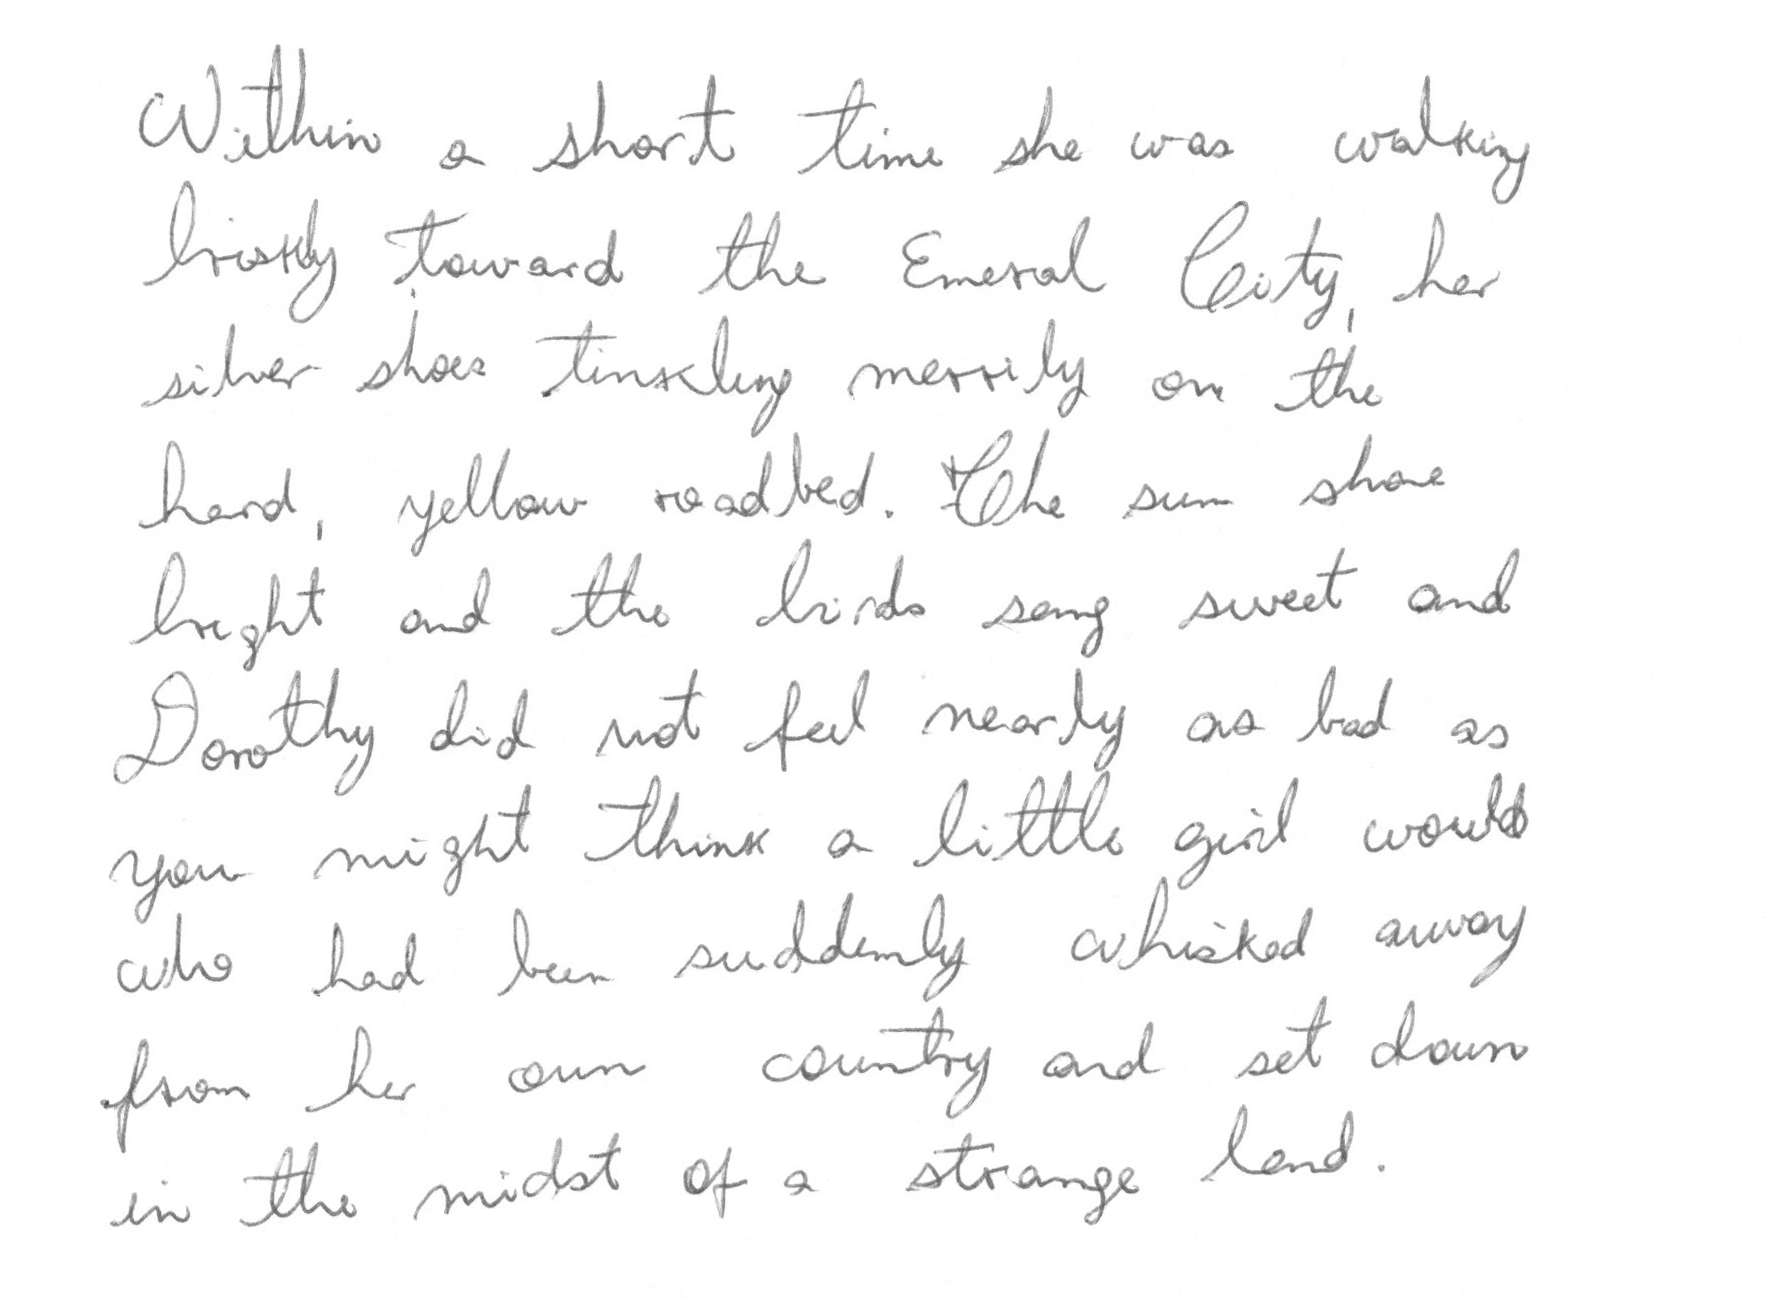 Within a short time she was walking
briskly toward the Emeral City, her
silver shoes tinkling merrily on the
hard, yellow roadbed. The sun shone
bright and the birds sang sweet and
Dorothy did not feel nearly as bad as
you might think a little girl would
who had been suddenly whisked away
from her own country and set down
in the midst of a strange land.